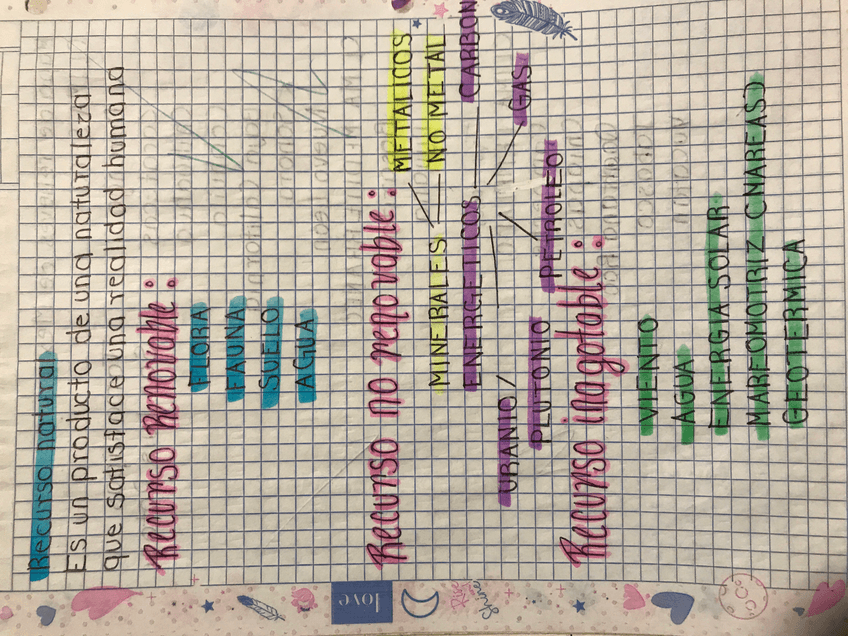 Recurso natural
Es un producto de una naturaleza
que satisface una realidad humana
Recurso Renovable:
FLORA
FAUNA
SUELO
AGUA
Recurso no renovable:
METALICOS
MINERALES NO METAL
ENERGETICOS CARBON
GAS
PETROLEO
URANIO/
PLUTONIO
Recurso inagotable:
VIENTO
AGUA
ENERGIA SOLAR
MAREOMOTRIZ (MAREAS)
GEOTERMICA
love
Rise
Shine